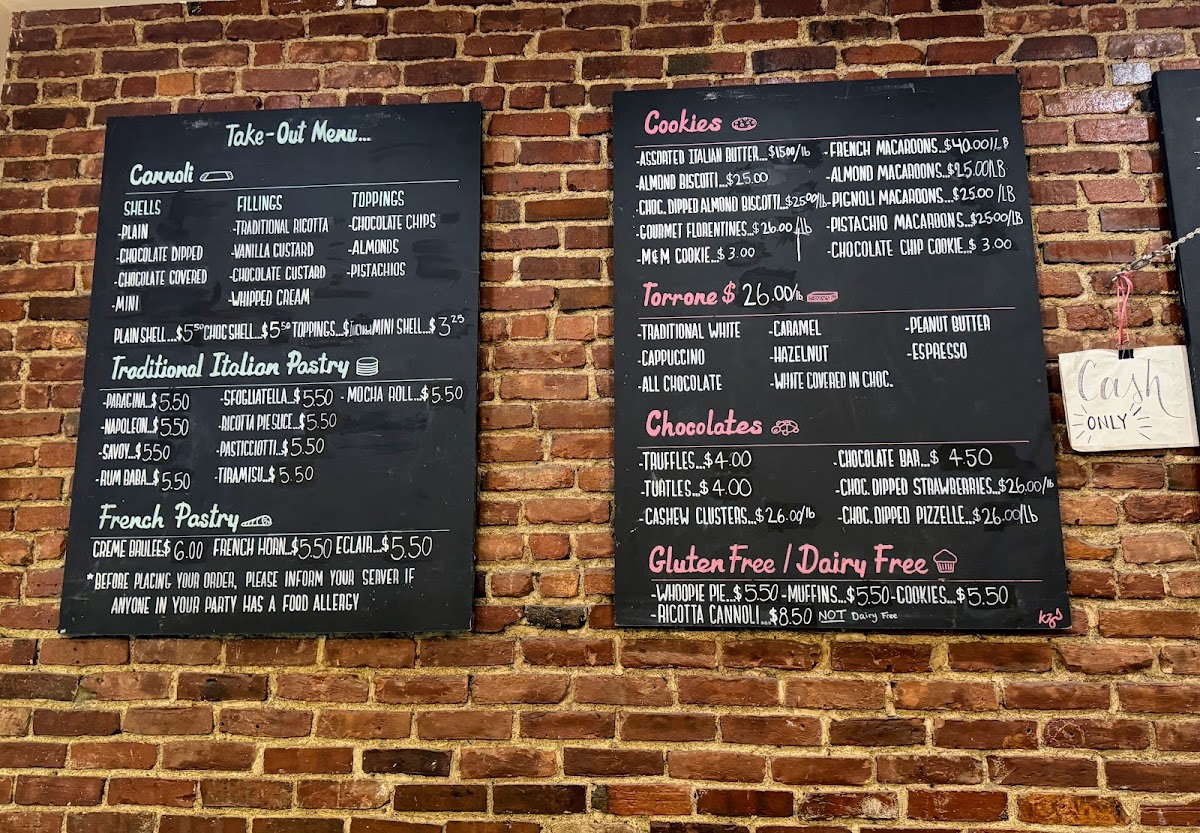 Take-Out Menu...
Cannoli
SHELLS
-PLAIN
-CHOCOLATE DIPPED
-CHOCOLATE COVERED
-MINI
FILLINGS
-TRADITIONAL RICOTTA
-VANILLA CUSTARD
-CHOCOLATE CUSTARD
-WHIPPED CREAM
TOPPINGS
-CHOCOLATE CHIPS
-ALMONDS
-PISTACHIOS
PLAIN SHELL....$5.50 CHOC SHELL...$5.50 TOPPINGS...$ MINI SHELL...$3.25
Traditional Italian Pastry
-PARAGINA...$5.50 -SFOGLIATELLA...$5.50 -MOCHA ROLL...$5.50
-NAPOLEON...$5.50 -RICOTTA PIE SLICE...$5.50
-SAVOY...$5.50 -PASTICCIOTTI...$5.50
-RUM BABA...$5.50 -TIRAMISU...$5.50
French Pastry
CREME BRULEE$6.00 FRENCH HORN...$5.50 ECLAIR...$5.50
*BEFORE PLACING YOUR ORDER, PLEASE INFORM YOUR SERVER IF
ANYONE IN YOUR PARTY HAS A FOOD ALLERGY
Cookies
-ASSORTED ITALIAN BUTTER...$15.00/lb -FRENCH MACAROONS...$40.00/LB
-ALMOND BISCOTTI...$25.00 -ALMOND MACAROONS...$25.00/LB
-CHOC. DIPPED ALMOND BISCOTTI...$25.00/lb -PIGNOLI MACAROONS...$25.00/LB
-GOURMET FLORENTINES...$26.00/lb -PISTACHIO MACAROONS...$25.00/LB
-M&M COOKIE...$3.00 -CHOCOLATE CHIP COOKIE...$3.00
Torrone $26.00/lb
-TRADITIONAL WHITE -CARAMEL -PEANUT BUTTER
-CAPPUCCINO -HAZELNUT -ESPRESSO
-ALL CHOCOLATE -WHITE COVERED IN CHOC.
Chocolates
-TRUFFLES...$4.00 -CHOCOLATE BAR...$4.50
-TURTLES...$4.00 -CHOC. DIPPED STRAWBERRIES...$26.00/lb
-CASHEW CLUSTERS...$26.00/lb -CHOC. DIPPED PIZZELLE...$26.00/lb
Gluten Free / Dairy Free
-WHOOPIE PIE...$5.50 -MUFFINS...$5.50 -COOKIES...$5.50
-RICOTTA CANNOLI...$8.50 NOT Dairy Free
Cash
ONLY